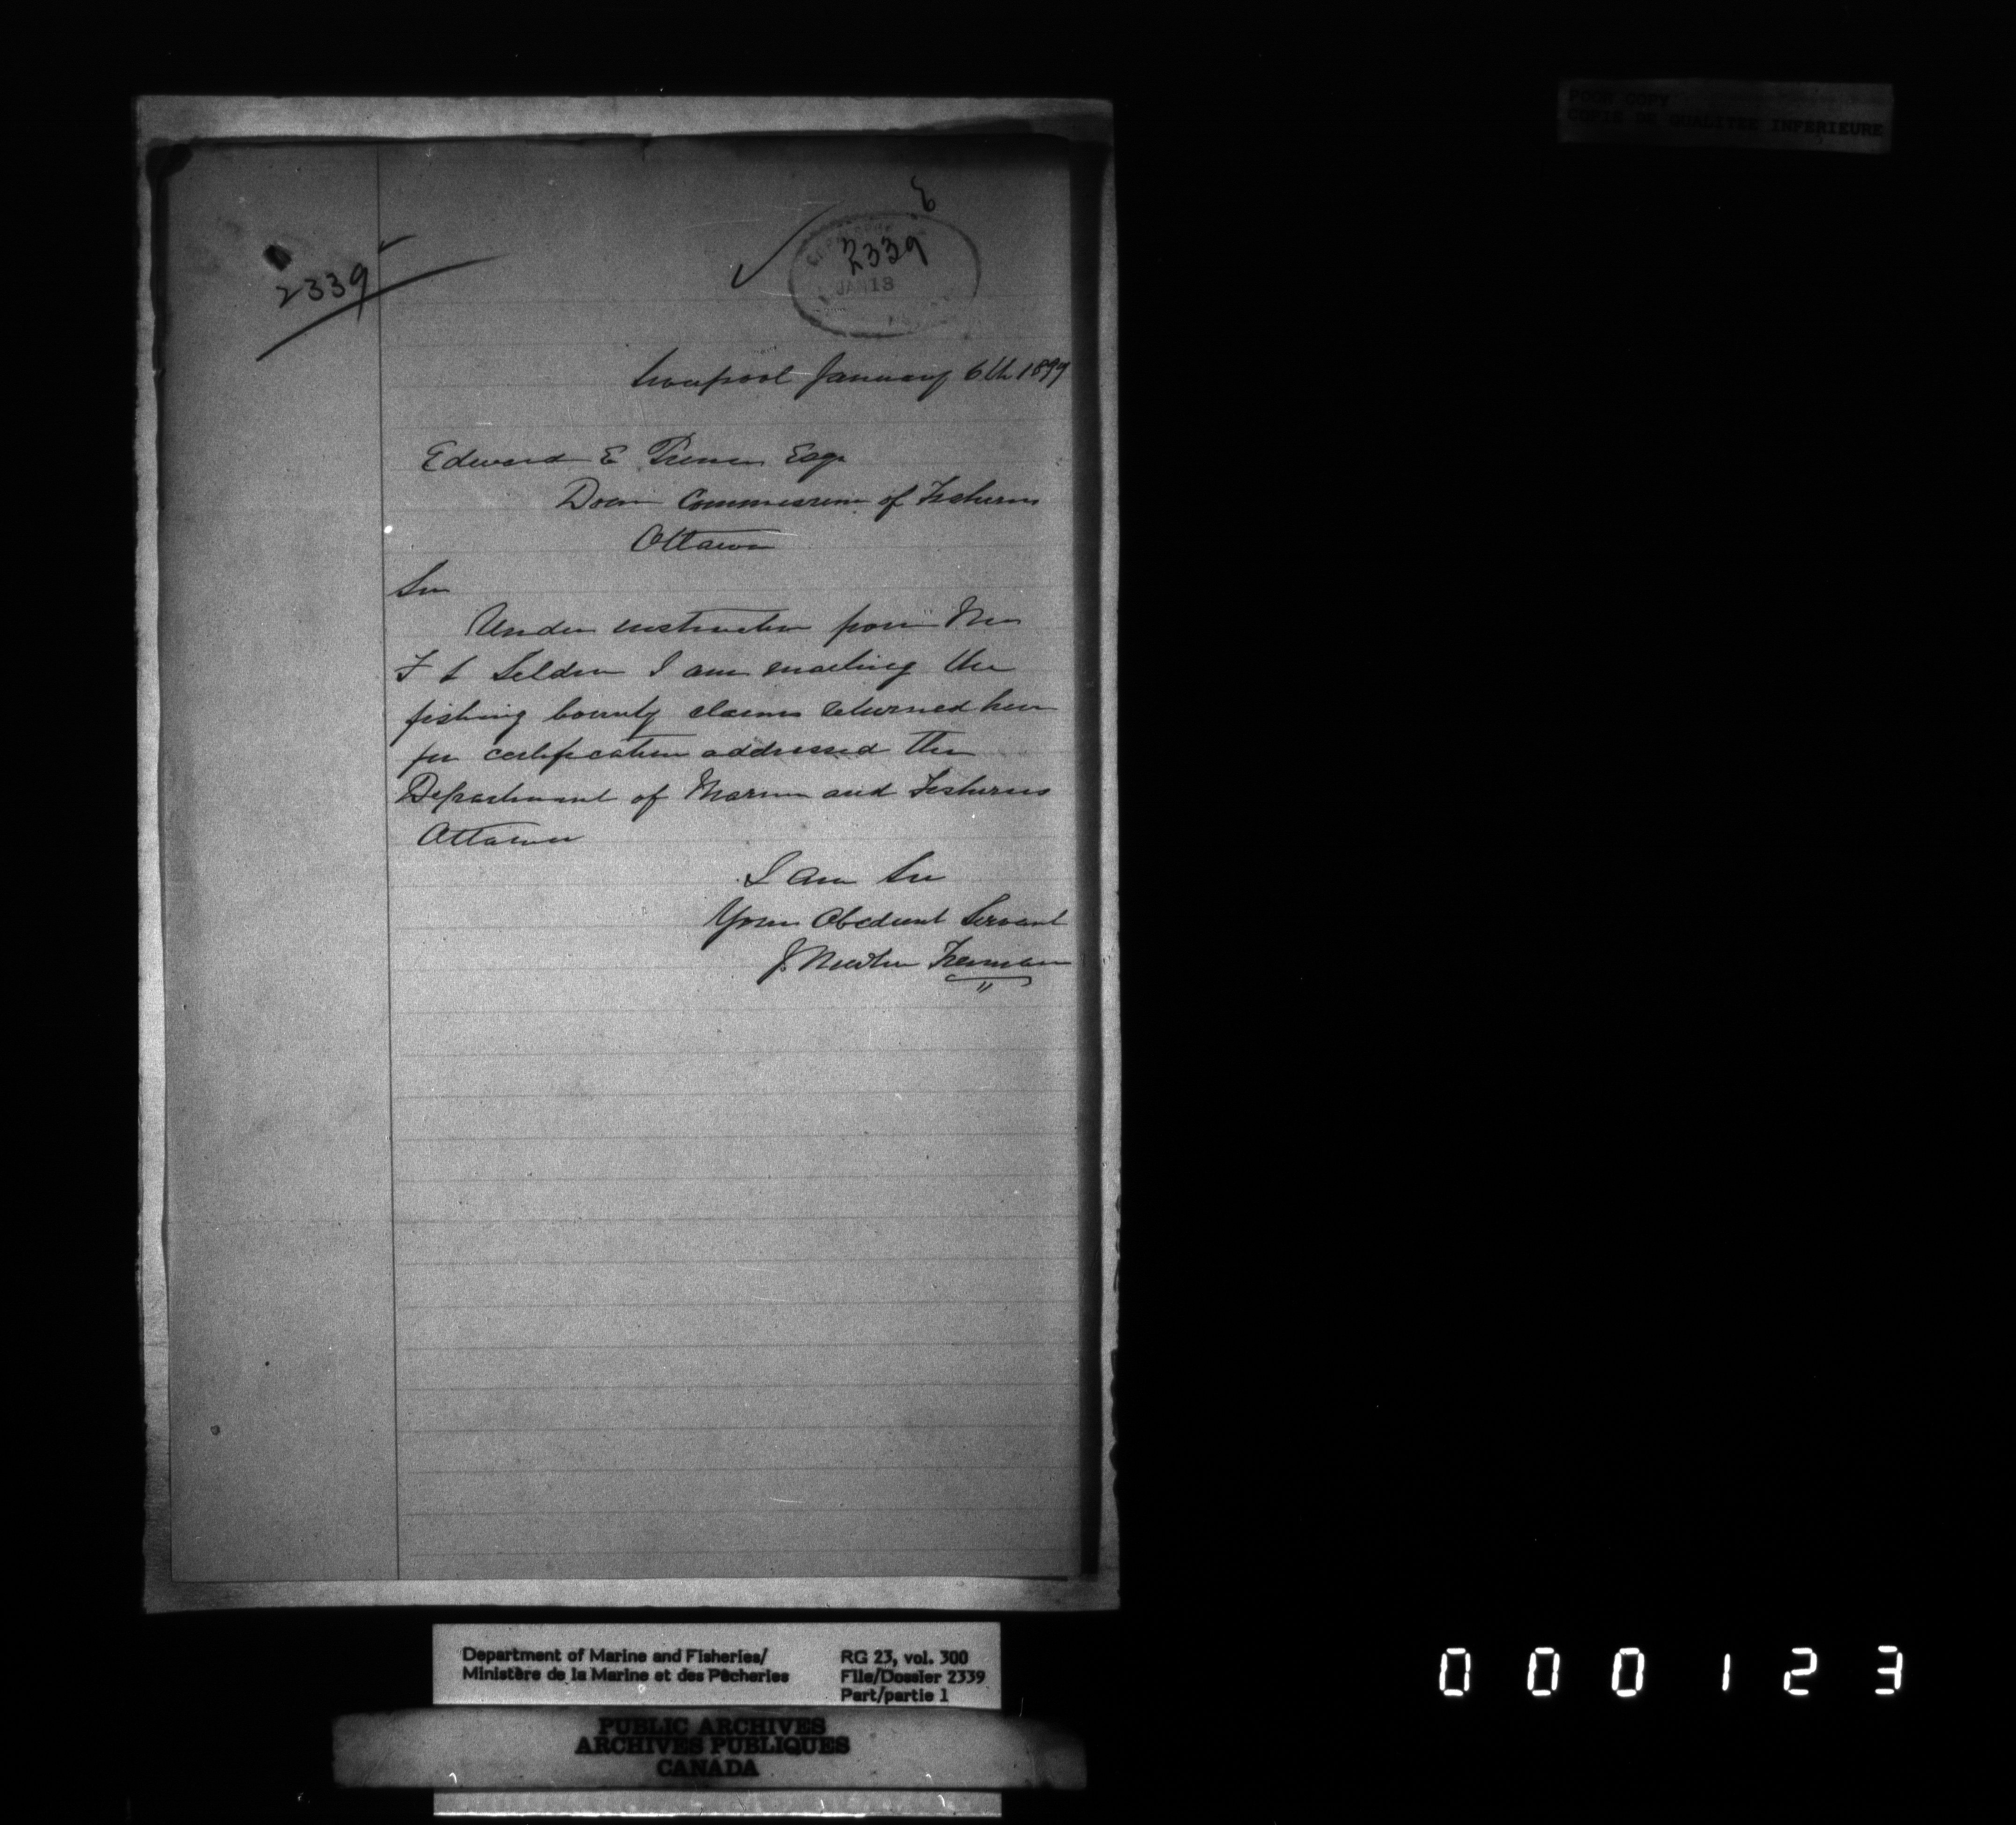 POOR COPY
COPIE DE QUALITEE INFERIEURE
2339
2339
JAN 13
Liverpool January 6th 1899
Edward E Prince Esqr
Dom Commissioner of Fisheries
Ottawa
Sir
Under instruction from
I am mailing the
fishing bounty claims returned here
for certification addressed the
Department of Marine and Fisheries
Ottawa
I am Sir
Your Obedient Servant
J. Newton Freeman
Department of Marine and Fisheries/
Ministère de la Marine et des Pêcheries
RG 23, vol. 300
File/Dossier 2339
Part/partie 1
PUBLIC ARCHIVES
ARCHIVES PUBLIQUES
CANADA
000123